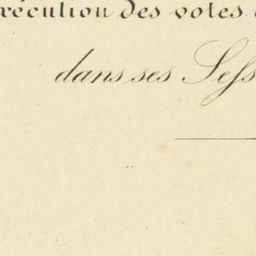 xécution des votes
dans ses Sess